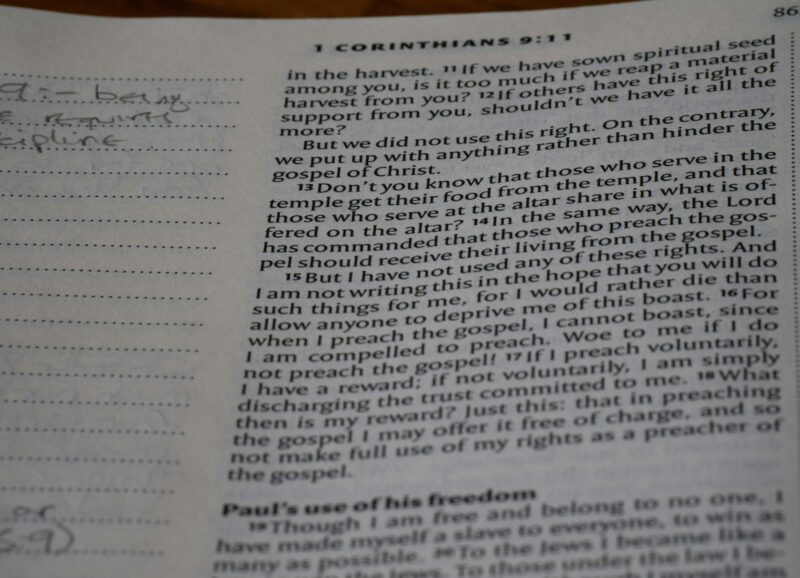 1 CORINTHIANS 9:11
86
9:- being
requires
in the harvest. 11 If we have sown spiritual seed
among you, is it too much if we reap a material
harvest from you? 12 If others have this right of
support from you, shouldn't we have it all the
more?
But we did not use this right. On the contrary,
we put up with anything rather than hinder the
gospel of Christ.
13 Don't you know that those who serve in the
temple get their food from the temple, and that
those who serve at the altar share in what is of-
fered on the altar? 14 In the same way, the Lord
has commanded that those who preach the gos-
pel should receive their living from the gospel.
15 But I have not used any of these rights. And
I am not writing this in the hope that you will do
such things for me, for I would rather die than
allow anyone to deprive me of this boast. 16 For
when I preach the gospel, I cannot boast, since
I am compelled to preach. Woe to me if I do
not preach the gospel! 17 If I preach voluntarily,
I have a reward; if not voluntarily, I am simply
discharging the trust committed to me. 18 What
then is my reward? Just this: that in preaching
the gospel I may offer it free of charge, and so
not make full use of my rights as a preacher of
the gospel.
Paul's use of his freedom
19 Though I am free and belong to no one, I
have made myself a slave to everyone, to win as
many as possible. 20 To the Jews I became like a
the Jews. To those under the law I be-
or